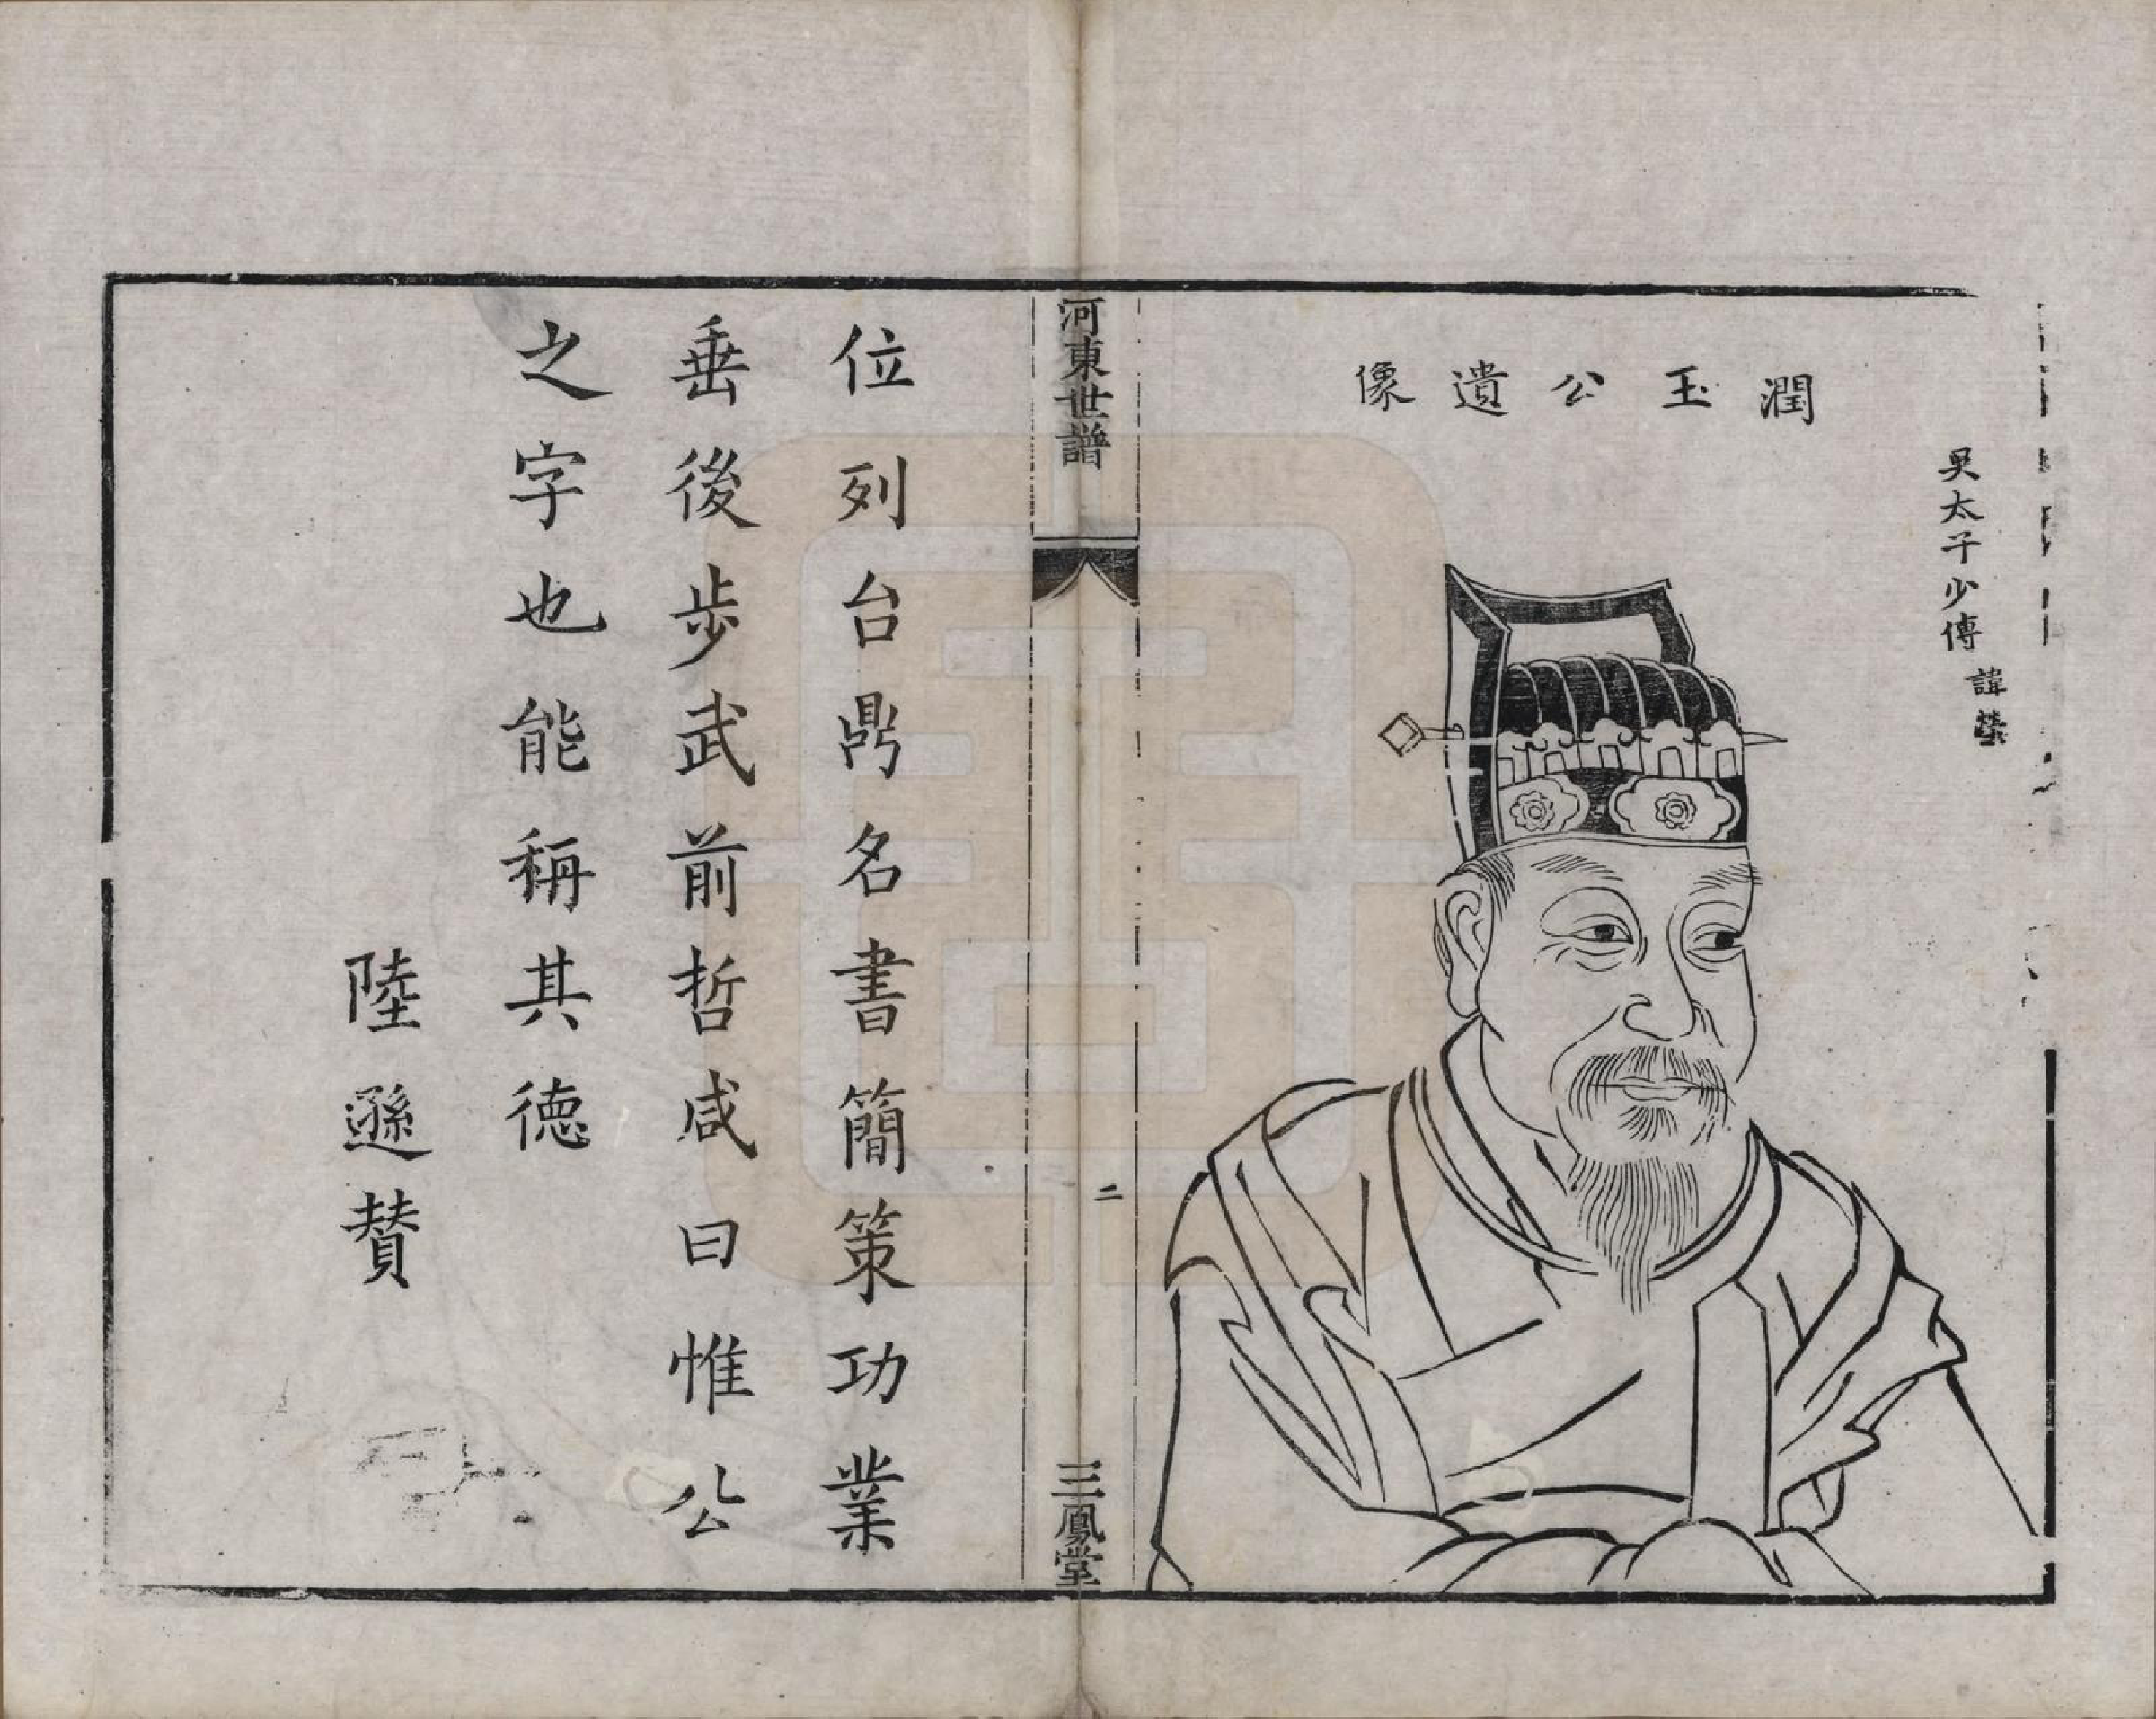 吳太子少傅 諱瑩
潤玉公遺像
河東世譜
二
三鳳堂
位列台鼎名書簡策功業
垂後步武前哲咸曰惟公
之字也能稱其德
陸遜賛